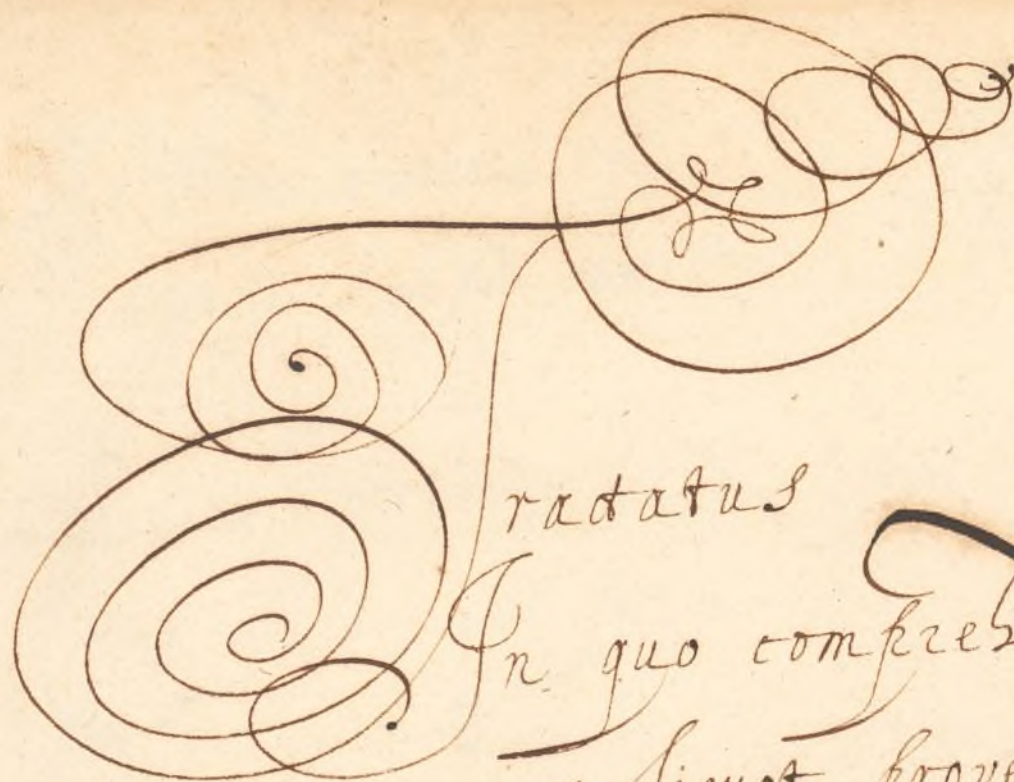 Tractatus
In quo compreh